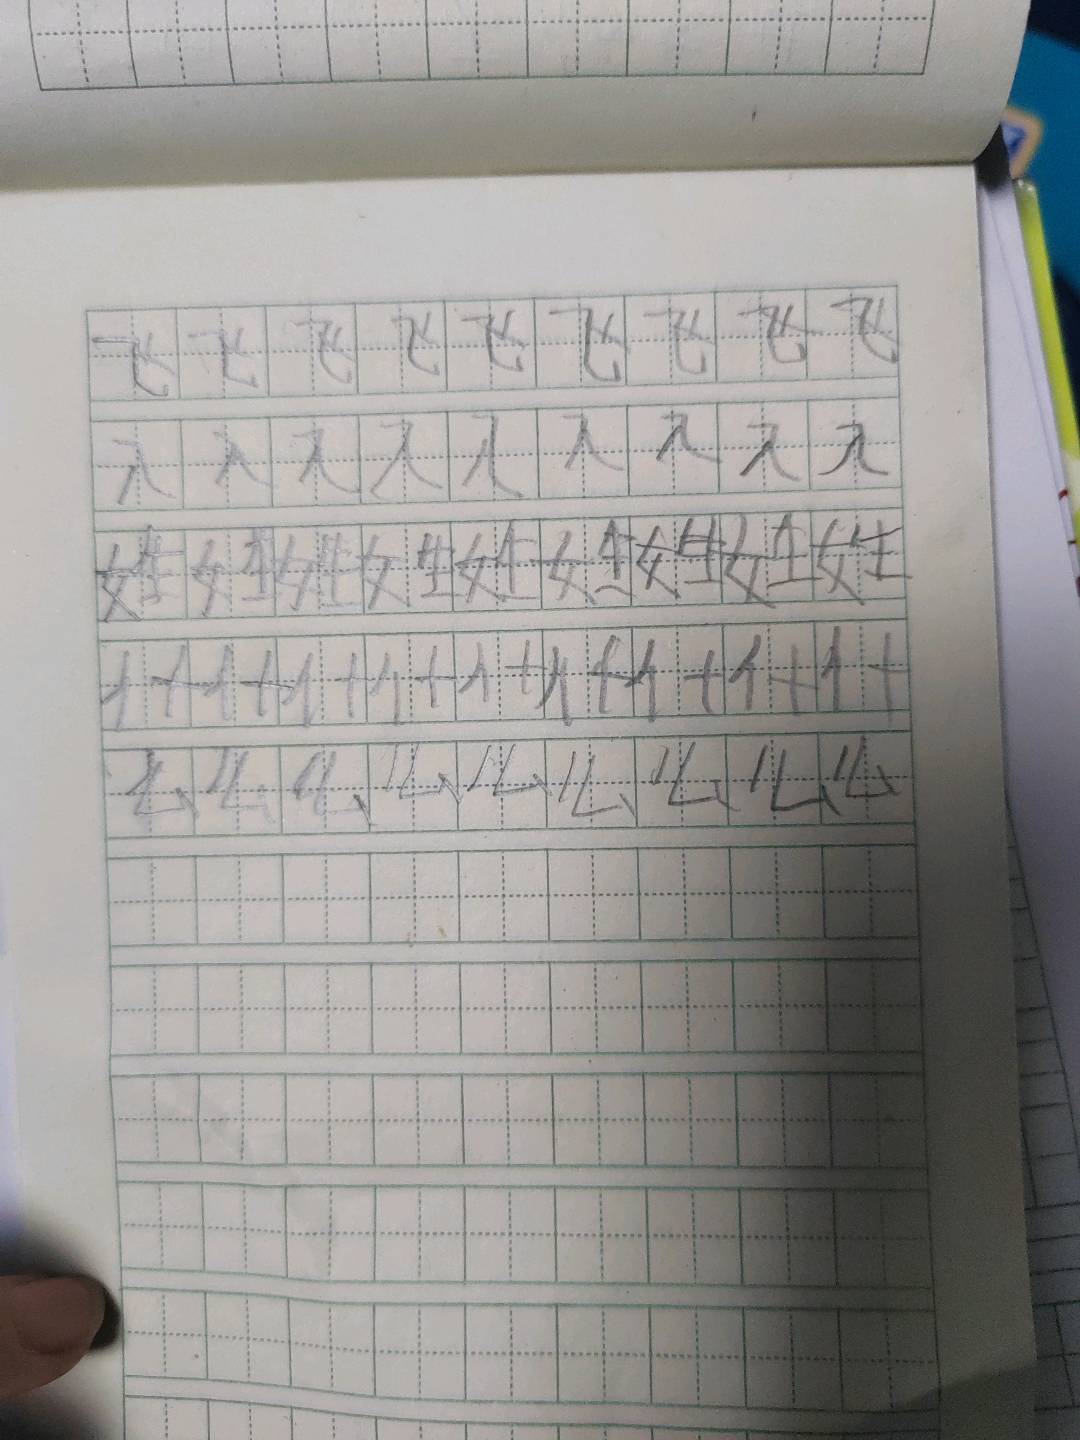 飞飞飞飞飞飞飞飞飞
入入入入入入入入入
姓姓姓姓姓姓姓姓姓
什什什什什什什什什
么么么么么么么么么